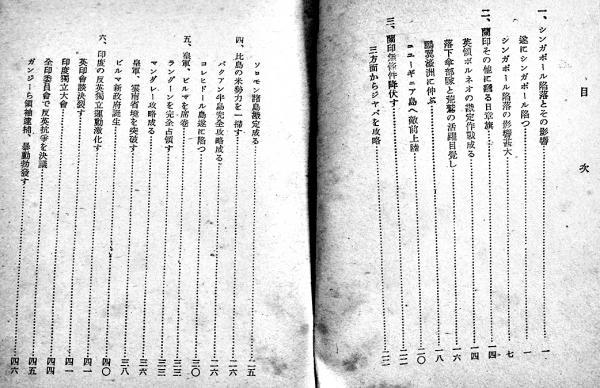 目次
一、シンガポール陷落とその影響……一
遂にシンガポール陷つ……一
シンガポール陷落の影響甚大……七
二、蘭印その他に飜る日章旗……一四
英領ボルネオの戡定作戰成る……一四
落下傘部隊と荒鷲の活躍目覺し……一六
鵬翼濠洲に伸ぶ……一八
ニューギニア島へ敵前上陸……二〇
三、蘭印無條件降伏す……二二
三方面からジャバを攻略……二二
ソロモン諸島戡定成る……二五
四、比島の米勢力を一掃す……二六
バタアン半島完全攻略成る……二六
コレヒドール島遂に陷つ……三〇
五、皇軍、ビルマを席巻……三三
ラングーンを完全占領す……三三
マンダレー攻略成る……三六
皇軍、雲南省境を突破す……三八
ビルマ新政府誕生……三八
六、印度の反英獨立運動激化す……四〇
英印會談決裂す……四一
印度獨立大會……四一
全印委員會で反英抗爭を決議……四四
ガンジーら領袖逮捕、暴動勃發す……四六